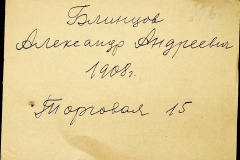 Блинцов
Александр Андреевич
1908г.
Торговая 15